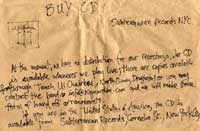 BUY CD
Subterranean Records NYC
At the moment, we have no distribution for our recordings, so CD
is available wherever we play live; there are copies available
through Touch, UK
contact the band or info@ and we will make some
form of barter or arrangement
if you are in the United States of America, the CD is
available from Subterranean Records, Cornelia St., New York City